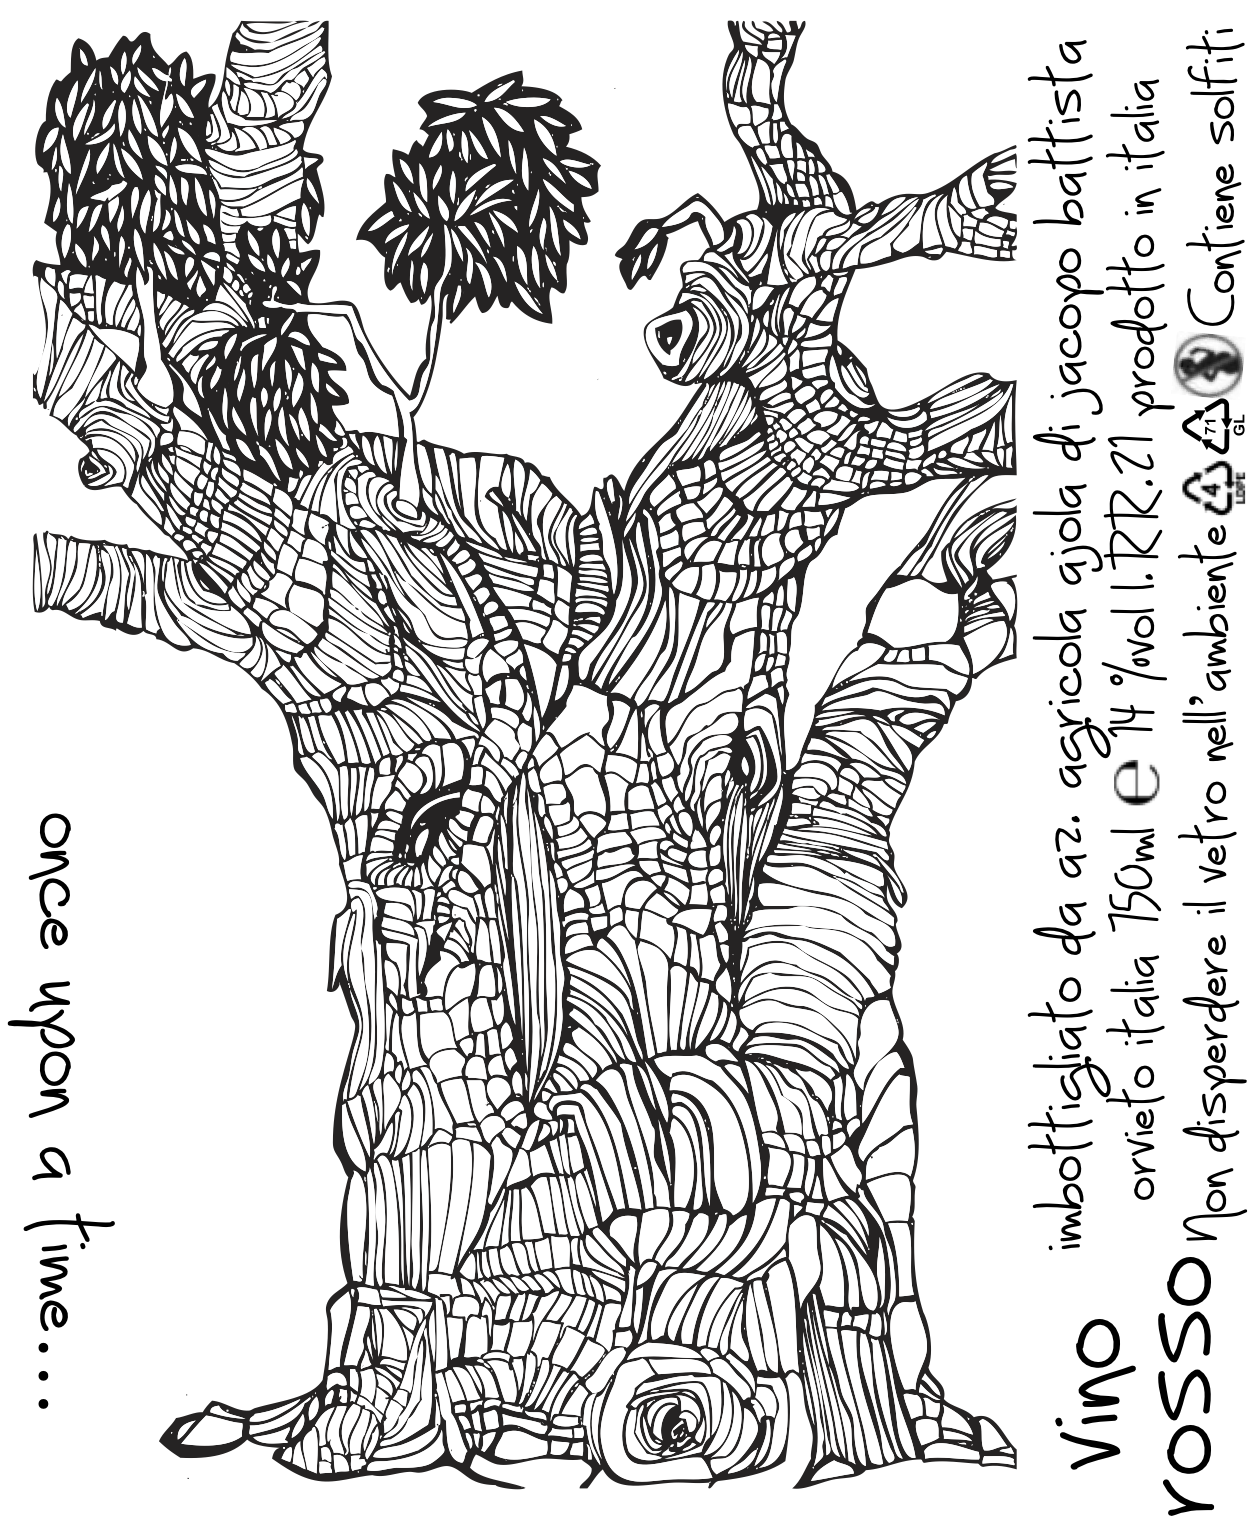 once upon a time...
imbottigliato da az. agricola ajola di jacopo battista
orvieto italia 750ml e 14 %vol l.RR.21 prodotto in italia
Vino
rosso
Non disperdere il vetro nell'ambiente
4
LDPE
71
GL
Contiene solfiti